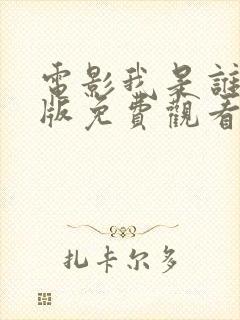 電影我是誰
版免費觀看
扎卡尔多